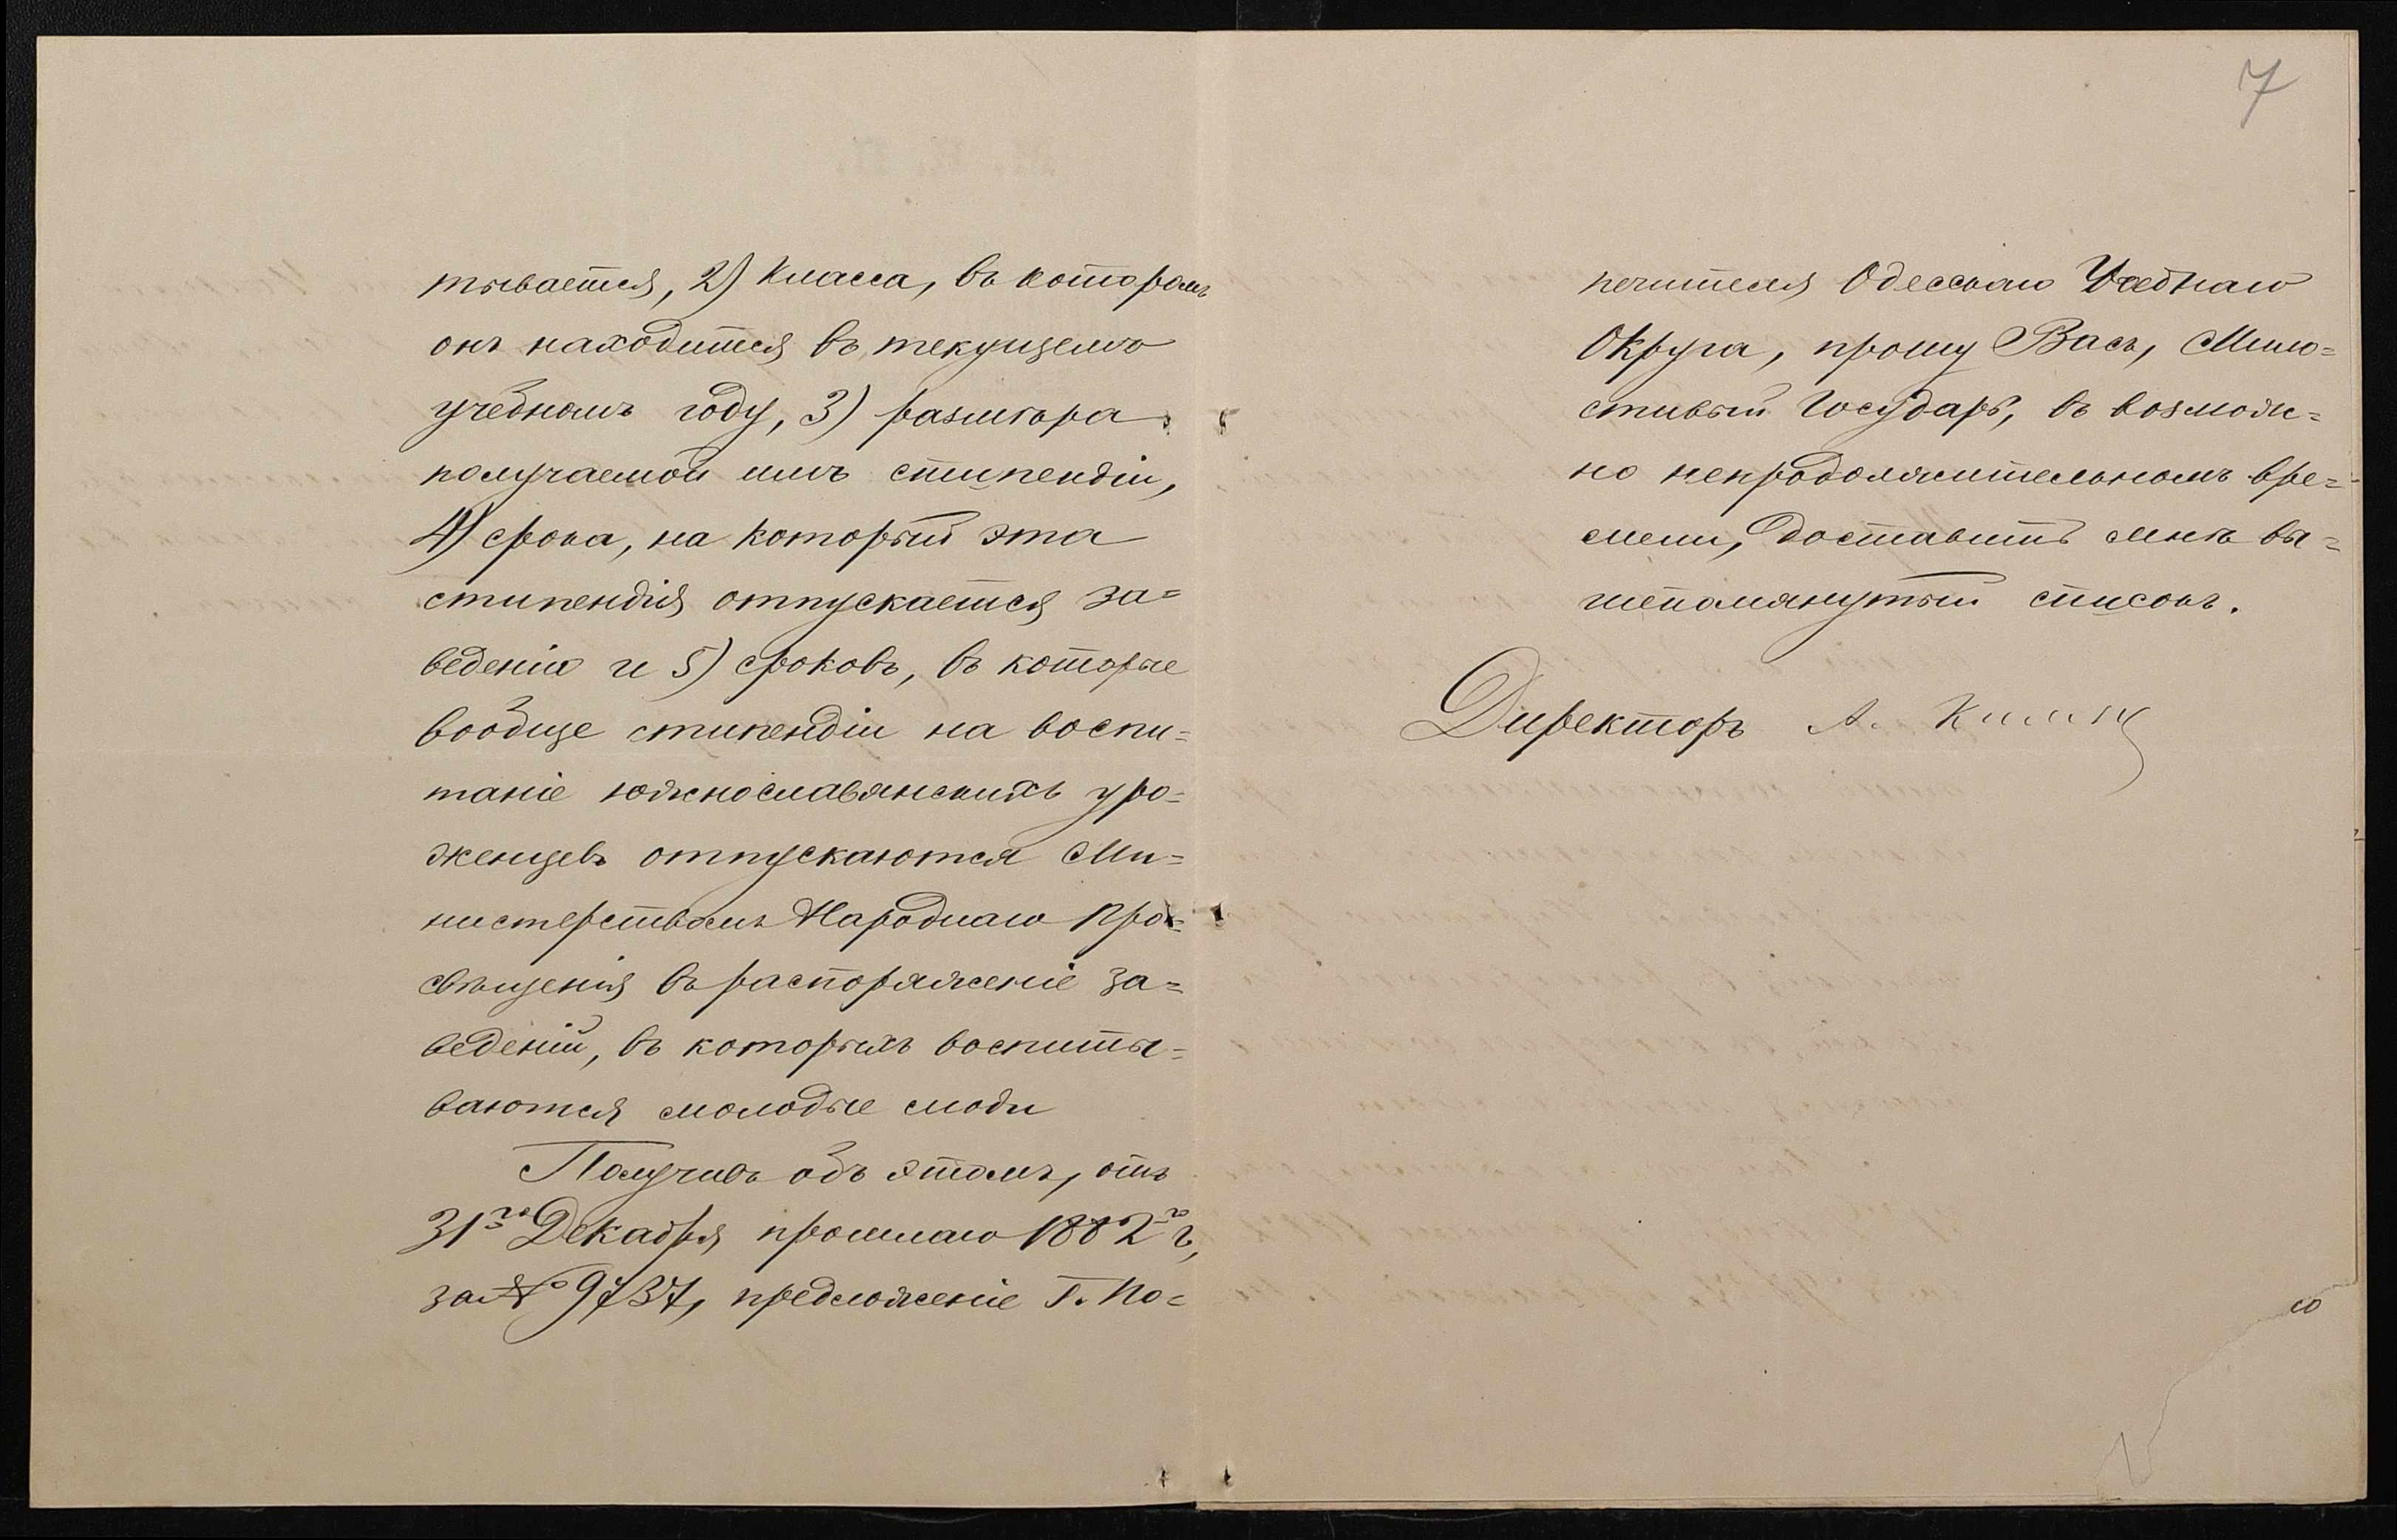 тывается, 2) класса, въ которомъ
онъ находится въ текущемъ
учебномъ году, 3) размѣра
получаемой имъ стипендіи,
4) срока, на который эта
стипендія отпускается за=
веденію и 5) сроковъ, въ которые
вообще стипендіи на воспи=
таніе южнославянскихъ уро=
женцевъ отпускаются Ми=
нистерствомъ Народнаго Про=
свѣщенія въ распоряженіе за=
веденій, въ которыхъ воспиты=
ваются молодые люди
Получивъ объ этомъ, отъ
31го Декабря прошлаго 1882го г.,
за № 9737, предложеніе Г. По=
7
печителя Одесскаго Учебнаго
Округа, прошу Васъ, Мило=
стивый Государь, въ возмож=
но непродолжительномъ вре=
мени, доставить мнѣ вы=
шепомянутый списокъ.
Директоръ А.